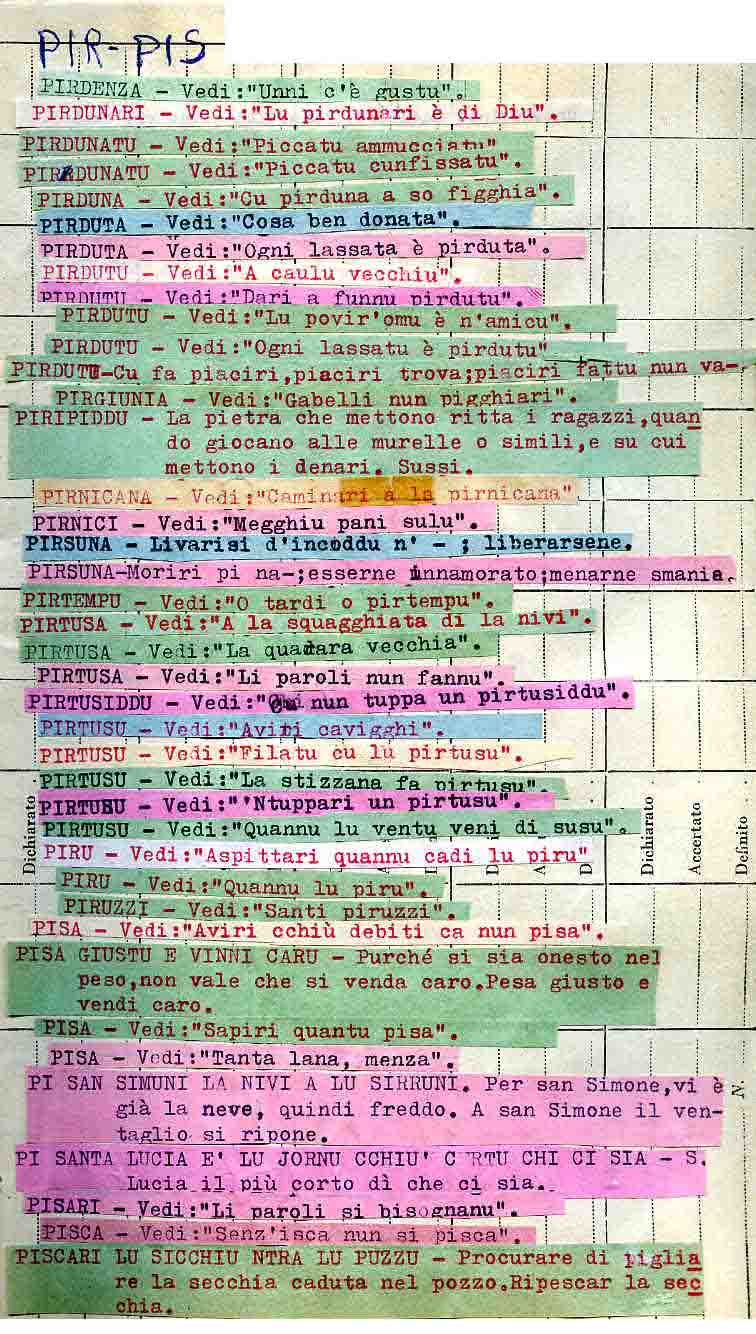 PIR-PIS
PIRDENZA - Vedi:"Unni c'è gustu".
PIRDUNARI - Vedi:"Lu pirdunari è di Diu".
PIRDUNATU - Vedi:"Piccatu ammucciatu"
PIRDUNATU - Vedi:"Piccatu cunfissatu".
PIRDUNA - Vedi:"Cu pirduna a so figghia".
PIRDUTA - Vedi:"Cosa ben donata".
PIRDUTA - Vedi:"Ogni lassata è pirduta".
PIRDUTU - Vedi:"A caulu vecchiu".
PIRDUTU - Vedi:"Dari a funnu pirdutu".
PIRDUTU - Vedi:"Lu povir'omu è n'amicu".
PIRDUTU - Vedi:"Ogni lassatu è pirdutu"
PIRDUTU-Cu fa piaciri,piaciri trova;piaciri fattu nun va-
PIRGIUNIA - Vedi:"Gabelli nun pigghiari".
PIRIPIDDU - La pietra che mettono ritta i ragazzi,quan
do giocano alle murelle o simili,e su cui
mettono i denari. Sussi.
PIRNICANA - Vedi:"Caminari a la pirnicana"
PIRNICI - Vedi:"Megghiu pani sulu".
PIRSUNA - Livarisi d'incoddu n' - ; liberarsene.
PIRSUNA-Moriri pi na-;esserne innamorato;menarne smania.
PIRTEMPU - Vedi:"O tardi o pirtempu".
PIRTUSA - Vedi:"A la squagghiata di la nivi".
PIRTUSA - Vedi:"La quadara vecchia".
PIRTUSA - Vedi:"Li paroli nun fannu".
PIRTUSIDDU - Vedi:"Cui nun tuppa un pirtusiddu".
PIRTUSU - Vedi:"Aviri cavigghi".
PIRTUSU - Vedi:"Filatu cu lu pirtusu".
PIRTUSU - Vedi:"La stizzana fa pirtusu".
PIRTUSU - Vedi:"'Ntuppari un pirtusu".
PIRTUSU - Vedi:"Quannu lu ventu veni di susu".
PIRU - Vedi:"Aspittari quannu cadi lu piru"
PIRU - Vedi:"Quannu lu piru".
PIRUZZI - Vedi:"Santi piruzzi".
PISA - Vedi:"Aviri cchiù debiti ca nun pisa".
PISA GIUSTU E VINNI CARU - Purché si sia onesto nel
peso,non vale che si venda caro.Pesa giusto e
vendi caro.
PISA - Vedi:"Sapiri quantu pisa".
PISA - Vedi:"Tanta lana, menza".
PI SAN SIMUNI LA NIVI A LU SIRRUNI. Per san Simone,vi è
già la neve, quindi freddo. A san Simone il ven-
taglio si ripone.
PI SANTA LUCIA E' LU JORNU CCHIU' CURTU CHI CI SIA - S.
Lucia il più corto dì che ci sia.
PISARI - Vedi:"Li paroli si bisognanu".
PISCA - Vedi:"Senz'isca nun si pisca".
PISCARI LU SICCHIU NTRA LU PUZZU - Procurare di piglia
re la secchia caduta nel pozzo.Ripescar la sec
chia.
Dichiarato
Dichiarato
Accertato
Definito
N.